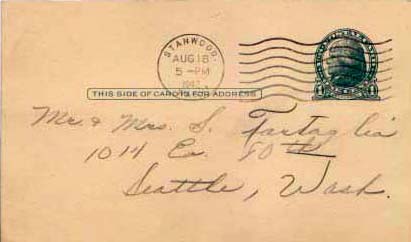 STANWOOD.
AUG 18
5 - PM
THIS SIDE OF CARD IS FOR ADDRESS
Mr. & Mrs. S. Fartaglia
1014 Ea. 80th
Seattle, Wash.